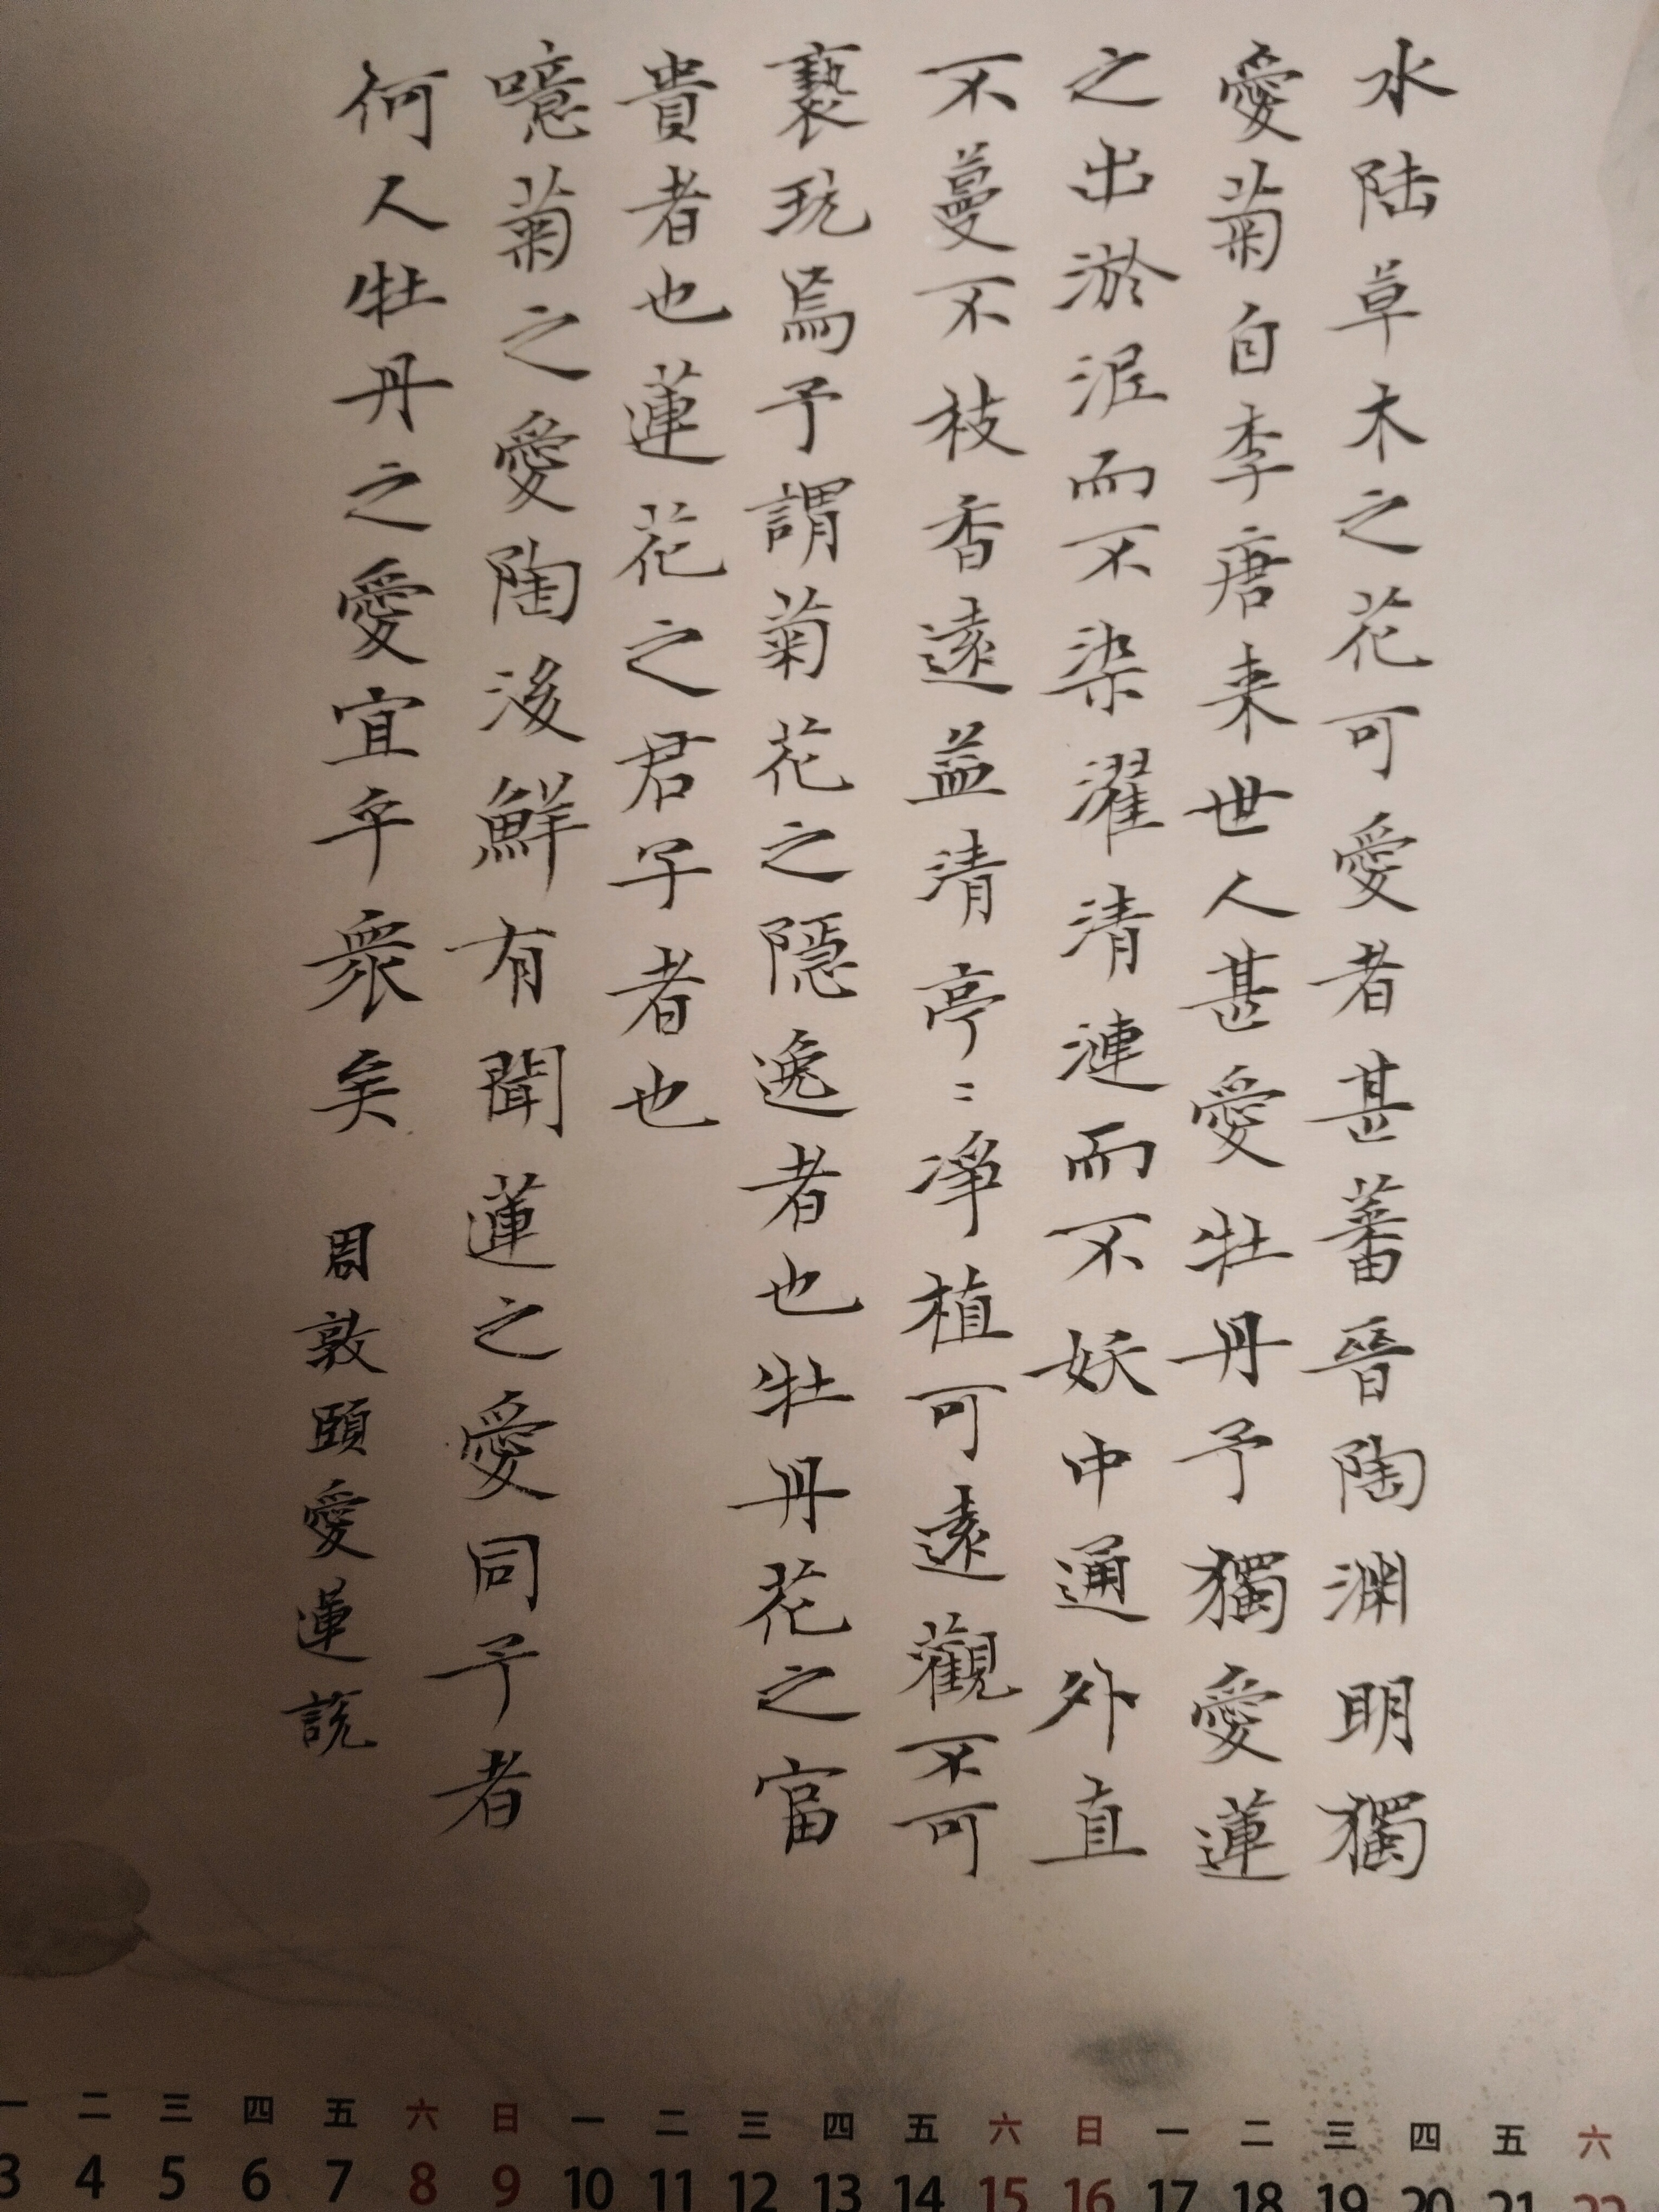 水陆草木之花可愛者甚蕃晉陶渊明獨
愛菊自李唐来世人甚愛牡丹予獨愛蓮
之出淤泥而不染濯清漣而不妖中通外直
不蔓不枝香遠益清亭〻淨植可遠觀不可
褻玩焉予謂菊花之隱逸者也牡丹花之富
貴者也蓮花之君子者也
噫菊之愛陶後鮮有聞蓮之愛同予者
何人牡丹之愛宜乎衆矣
周敦頤愛蓮説
一 二 三 四 五 六 日 一 二 三 四 五 六 日 一 二 三 四 五 六
3 4 5 6 7 8 9 10 11 12 13 14 15 16 17 18 19 20 21 22